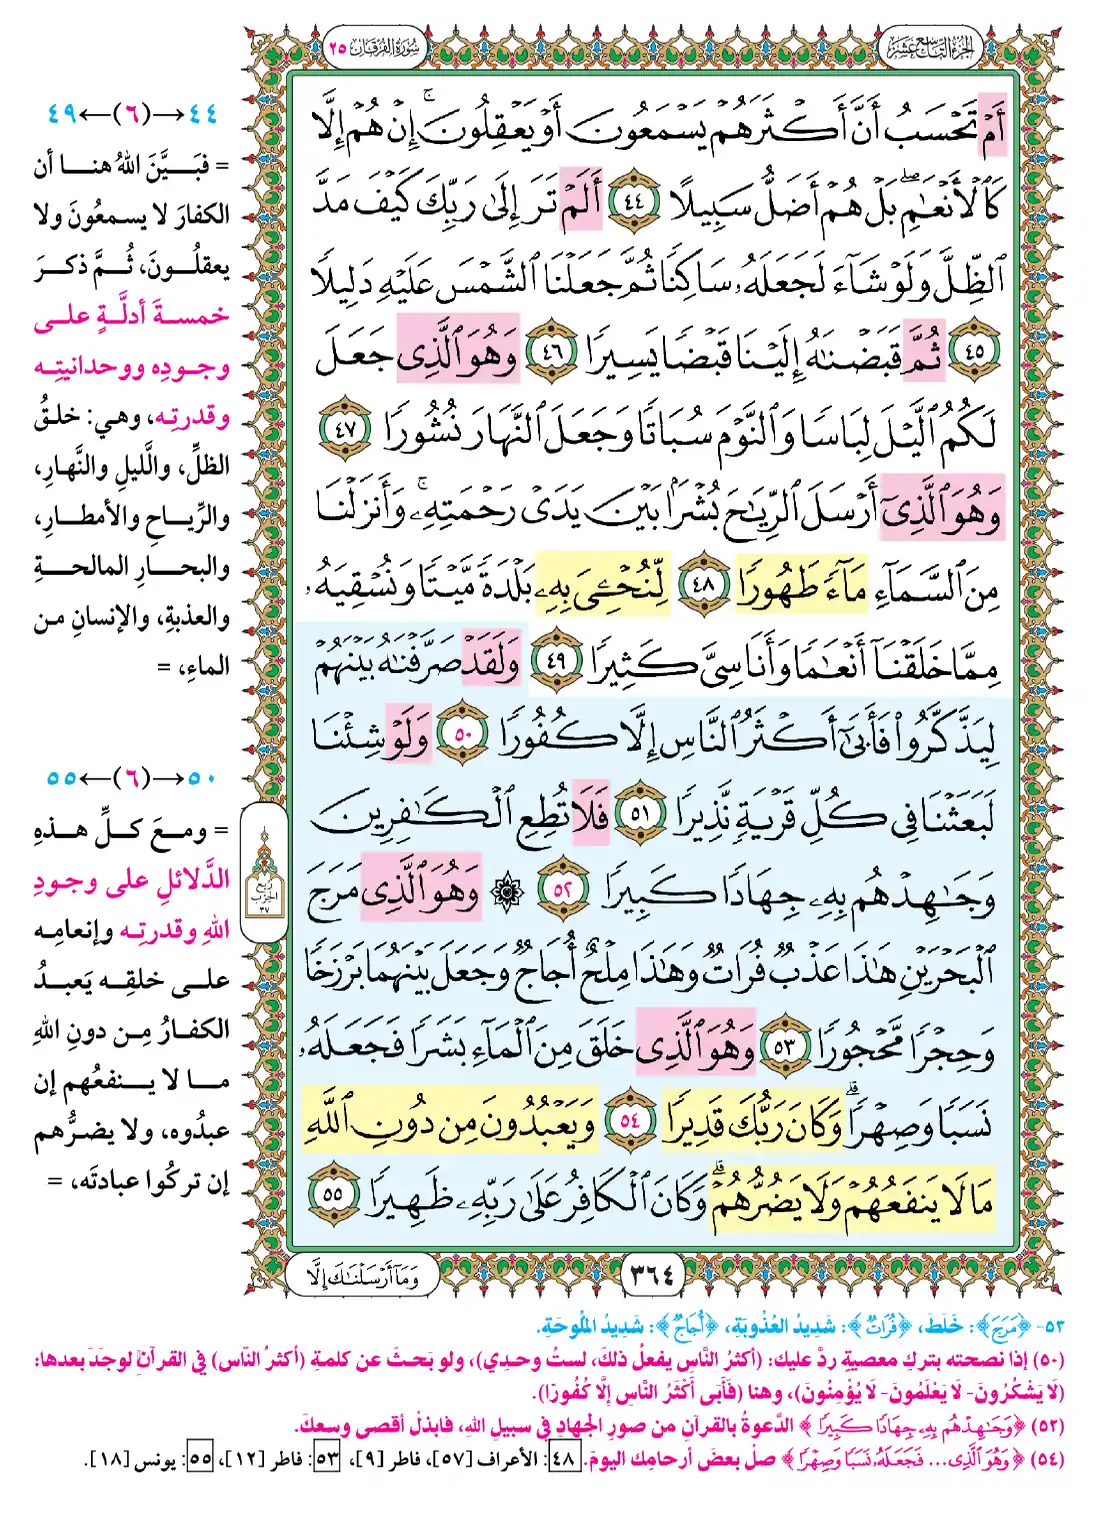 الجزء التاسع عشر
سورة الفرقان ٢٥
أَمْ تَحْسَبُ أَنَّ أَكْثَرَهُمْ يَسْمَعُونَ أَوْ يَعْقِلُونَ ۚ إِنْ هُمْ إِلَّا
كَالْأَنْعَامِ ۖ بَلْ هُمْ أَضَلُّ سَبِيلًا ٤٤ أَلَمْ تَرَ إِلَىٰ رَبِّكَ كَيْفَ مَدَّ
الظِّلَّ وَلَوْ شَاءَ لَجَعَلَهُ سَاكِنًا ثُمَّ جَعَلْنَا الشَّمْسَ عَلَيْهِ دَلِيلًا
٤٥ ثُمَّ قَبَضْنَاهُ إِلَيْنَا قَبْضًا يَسِيرًا ٤٦ وَهُوَ الَّذِي جَعَلَ
لَكُمُ اللَّيْلَ لِبَاسًا وَالنَّوْمَ سُبَاتًا وَجَعَلَ النَّهَارَ نُشُورًا ٤٧
وَهُوَ الَّذِي أَرْسَلَ الرِّيَاحَ بُشْرًا بَيْنَ يَدَيْ رَحْمَتِهِ ۚ وَأَنزَلْنَا
مِنَ السَّمَاءِ مَاءً طَهُورًا ٤٨ لِّنُحْيِيَ بِهِ بَلْدَةً مَّيْتًا وَنُسْقِيَهُ
مِمَّا خَلَقْنَا أَنْعَامًا وَأَنَاسِيَّ كَثِيرًا ٤٩ وَلَقَدْ صَرَّفْنَاهُ بَيْنَهُمْ
لِيَذَّكَّرُوا فَأَبَىٰ أَكْثَرُ النَّاسِ إِلَّا كُفُورًا ٥٠ وَلَوْ شِئْنَا
لَبَعَثْنَا فِي كُلِّ قَرْيَةٍ نَّذِيرًا ٥١ فَلَا تُطِعِ الْكَافِرِينَ
وَجَاهِدْهُم بِهِ جِهَادًا كَبِيرًا ٥٢ ۞ وَهُوَ الَّذِي مَرَجَ
الْبَحْرَيْنِ هَٰذَا عَذْبٌ فُرَاتٌ وَهَٰذَا مِلْحٌ أُجَاجٌ وَجَعَلَ بَيْنَهُمَا بَرْزَخًا
وَحِجْرًا مَّحْجُورًا ٥٣ وَهُوَ الَّذِي خَلَقَ مِنَ الْمَاءِ بَشَرًا فَجَعَلَهُ
نَسَبًا وَصِهْرًا ۗ وَكَانَ رَبُّكَ قَدِيرًا ٥٤ وَيَعْبُدُونَ مِن دُونِ اللَّهِ
مَا لَا يَنفَعُهُمْ وَلَا يَضُرُّهُمْ ۗ وَكَانَ الْكَافِرُ عَلَىٰ رَبِّهِ ظَهِيرًا ٥٥
٣٦٤
وَمَا أَرْسَلْنَاكَ إِلَّا
ربع الحزب ٣٧
٤٤→(٦)←٤٩
= فبَيَّنَ اللهُ هنا أن
الكفارَ لا يسمعُونَ ولا
يعقلُونَ، ثُمَّ ذكرَ
خمسةَ أدلَّةٍ على
وجودِه ووحدانيتِه
وقدرتِه، وهي: خلقُ
الظلِّ، واللَّيلِ والنَّهارِ،
والرِّياحِ والأمطارِ،
والبحارِ المالحةِ
والعذبةِ، والإنسانِ من
الماءِ، =
٥٠→(٦)←٥٥
= ومعَ كلِّ هذهِ
الدَّلائلِ على وجودِ
اللهِ وقدرتِه وإنعامِه
على خلقِه يَعبدُ
الكفارُ مِن دونِ اللهِ
ما لا ينفعُهم إن
عبدُوه، ولا يضرُّهم
إن تركُوا عبادتَه، =
٥٣- ﴿مَرَجَ﴾: خَلَطَ، ﴿فُرَاتٌ﴾: شَدِيدُ العُذُوبَةِ، ﴿أُجَاجٌ﴾: شَدِيدُ المُلُوحَةِ.
(٥٠) إذا نصحته بتركِ معصيةٍ ردَّ عليك: (أكثرُ النَّاسِ يفعلُ ذلكَ، لستُ وحدِي)، ولو بَحثَ عن كلمةِ (أكثرُ النّاسِ) في القرآنِ لوجدَ بعدها:
(لَا يَشْكُرُونَ- لَا يَعْلَمُونَ- لَا يُؤْمِنُونَ)، وهنا (فَأَبَى أَكْثَرُ النَّاسِ إِلَّا كُفُورًا).
(٥٢) ﴿وَجَاهِدْهُم بِهِ جِهَادًا كَبِيرًا﴾ الدَّعوةُ بالقرآنِ من صورِ الجهادِ في سبيلِ اللهِ، فابذلْ أقصى وسعكَ.
(٥٤) ﴿وَهُوَ الَّذِي... فَجَعَلَهُ نَسَبًا وَصِهْرًا﴾ صلْ بعضَ أرحامِكَ اليومَ. ٤٨: الأعراف [٥٧]، فاطر [٩]، ٥٣: فاطر [١٢]، ٥٥: يونس [١٨].